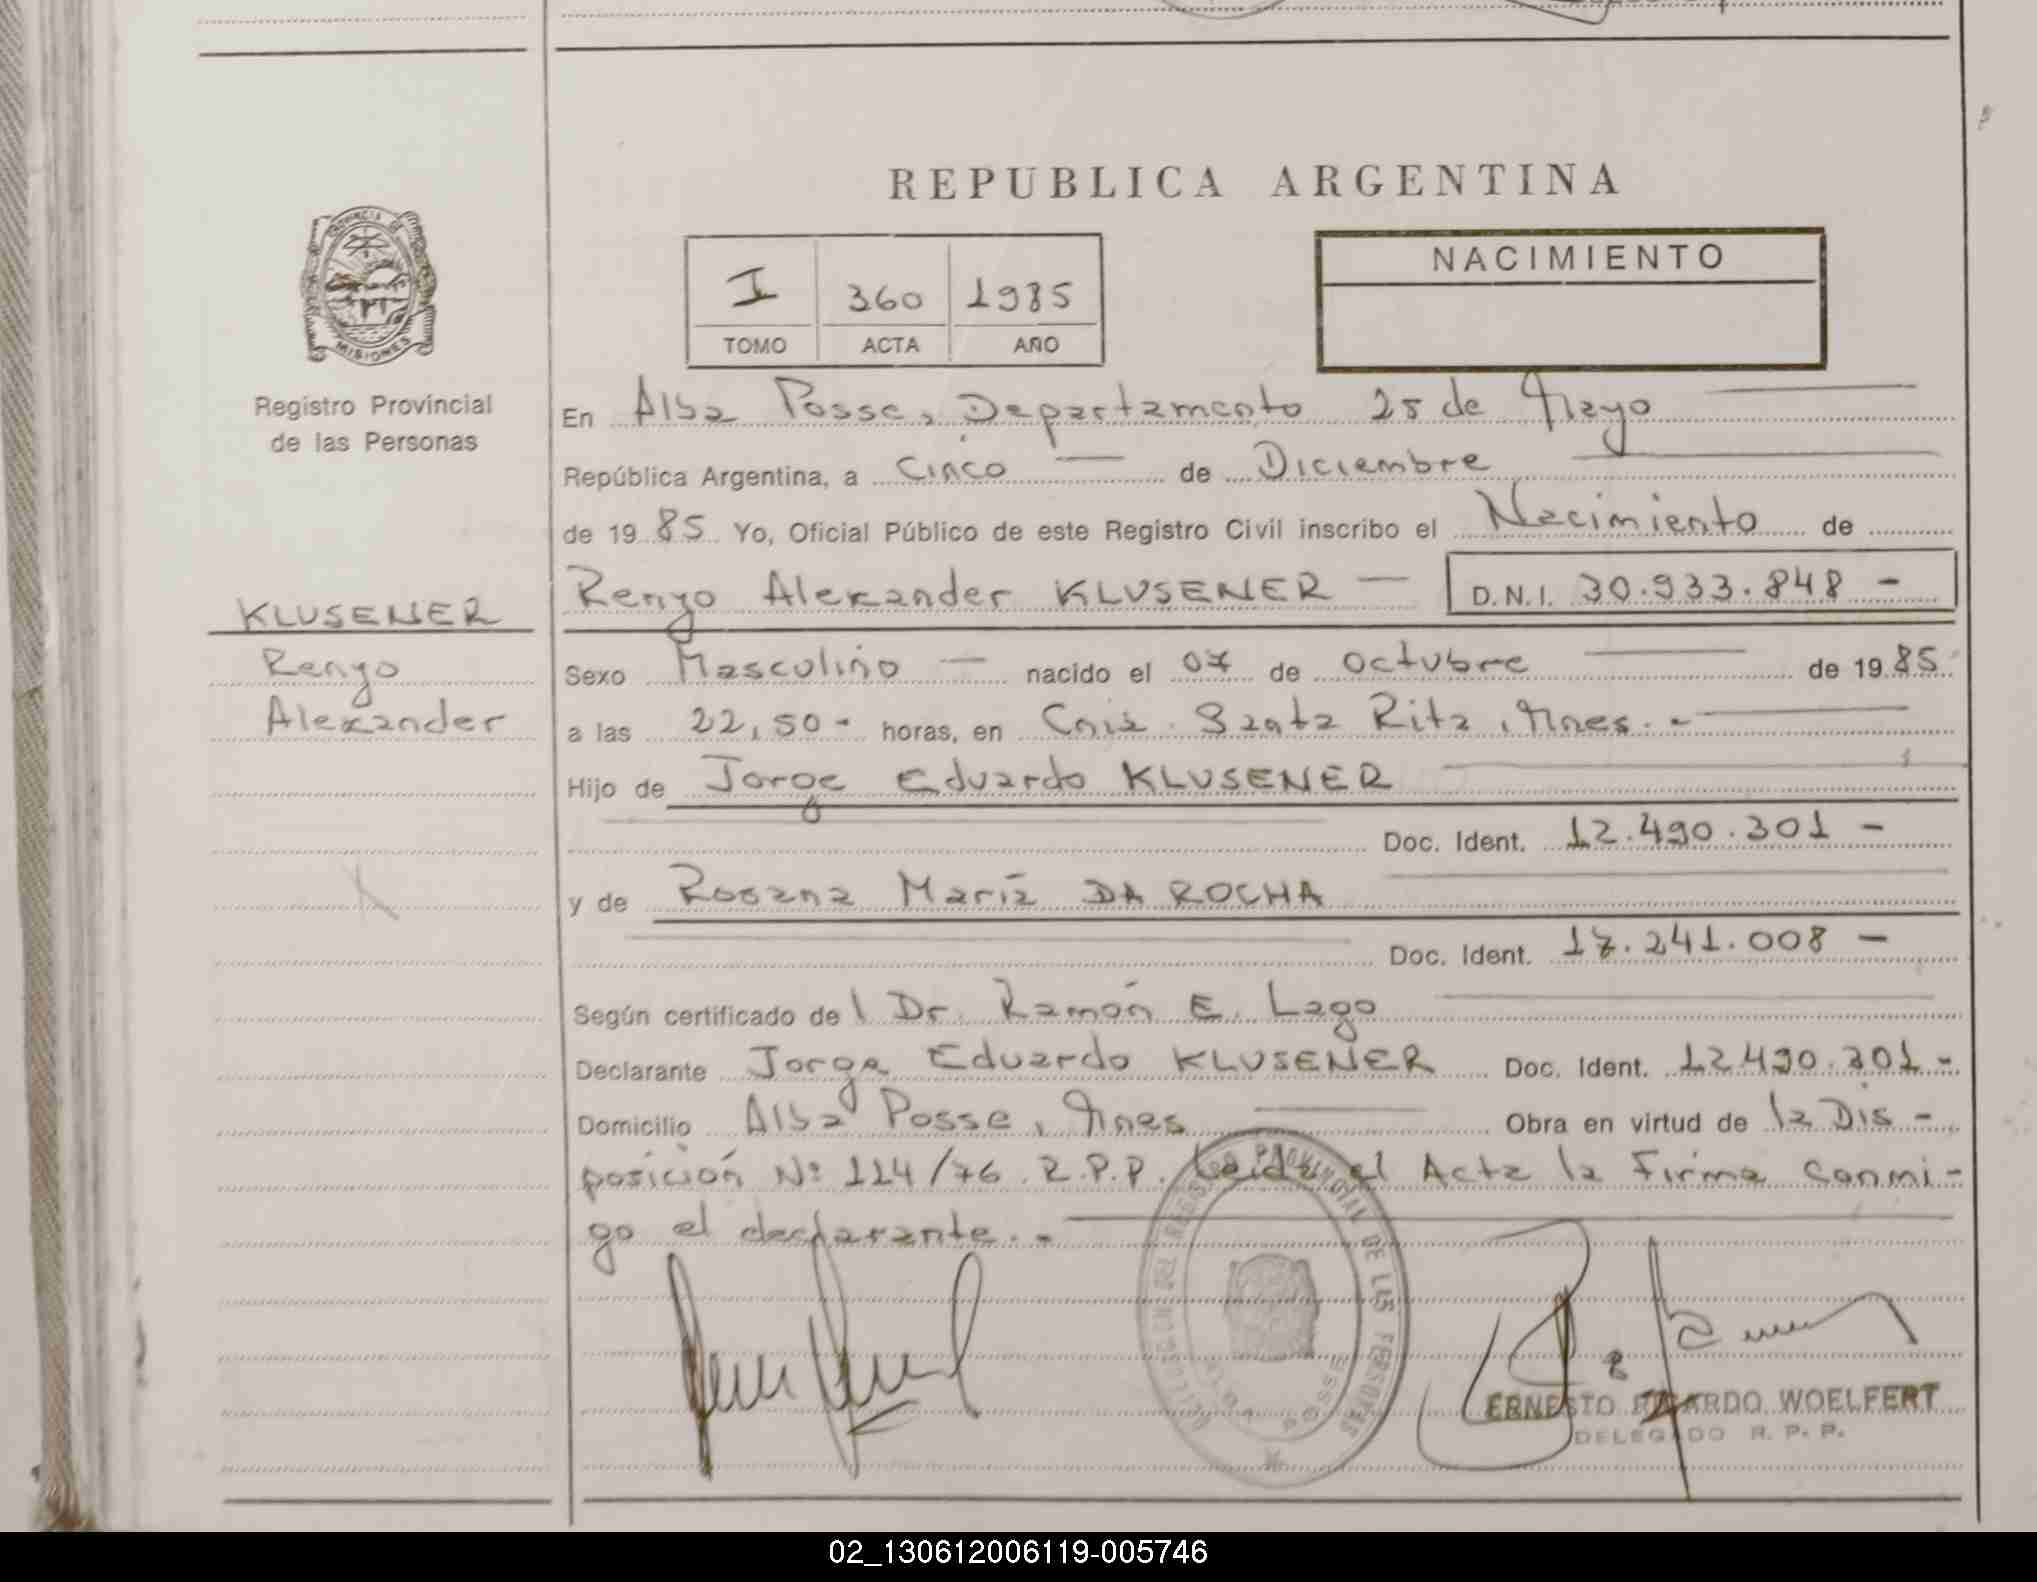 REPUBLICA ARGENTINA
PROVINCIA DE
MISIONES
Registro Provincial
de las Personas
I 360 1985
TOMO ACTA AÑO
NACIMIENTO
En Alba Posse, Departamento 25 de Mayo
República Argentina, a Cinco de Diciembre
de 1985 Yo, Oficial Público de este Registro Civil inscribo el Nacimiento de
Renzo Alexander KLUSENER — D.N.I. 30.933.848 -
KLUSENER
Renzo
Alexander
Sexo Masculino — nacido el 07 de octubre de 1985
a las 22,50- horas, en Cnia. Santa Rita, Mnes.-
Hijo de Jorge Eduardo KLUSENER
Doc. Ident. 12.490.301 -
y de Rosana María DA ROCHA
Doc. Ident. 17.241.008 -
Según certificado del Dr. Ramón E. Lago
Declarante Jorge Eduardo KLUSENER Doc. Ident. 12.490.301-
Domicilio Alba Posse, Mnes Obra en virtud de la Dis-
posición Nº 114/76 R.P.P. Leida el Acta la Firma conmi-
go el declarante.-
REGISTRO PROVINCIAL DE LAS PERSONAS
POSSE
ERNESTO RICARDO WOELFERT
DELEGADO R. P. P.
02_130612006119-005746